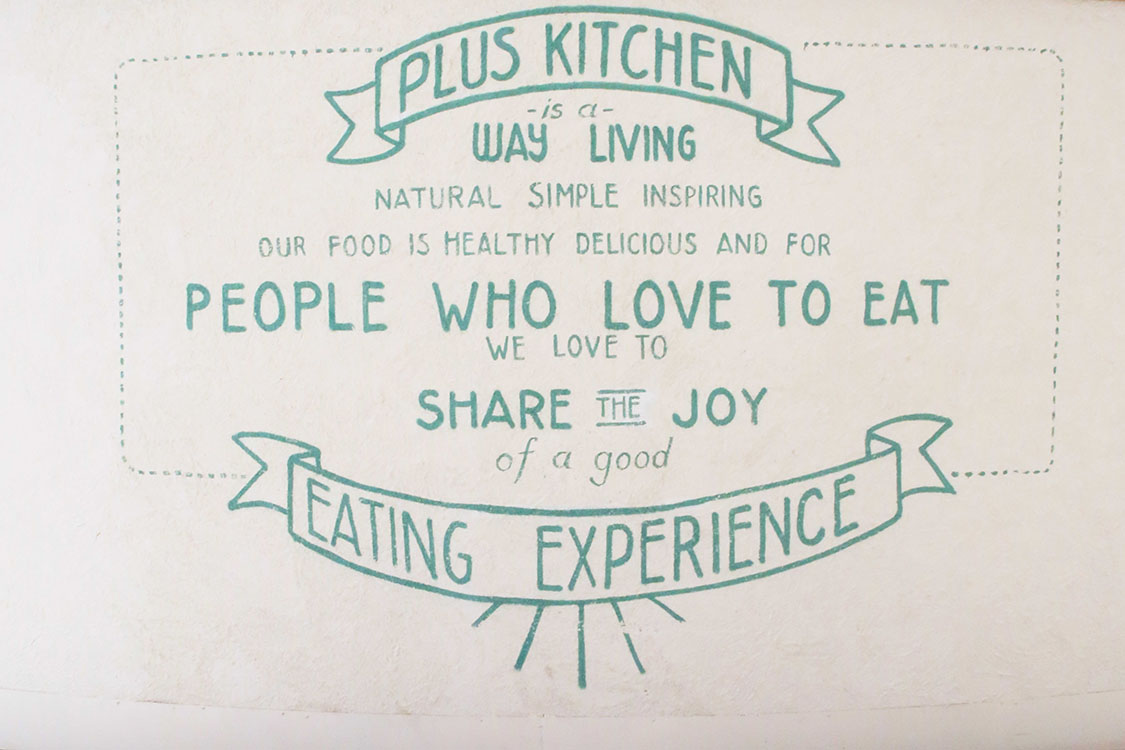 PLUS KITCHEN
-is a-
WAY LIVING
NATURAL SIMPLE INSPIRING
OUR FOOD IS HEALTHY DELICIOUS AND FOR
PEOPLE WHO LOVE TO EAT
WE LOVE TO
SHARE THE JOY
of a good
EATING EXPERIENCE